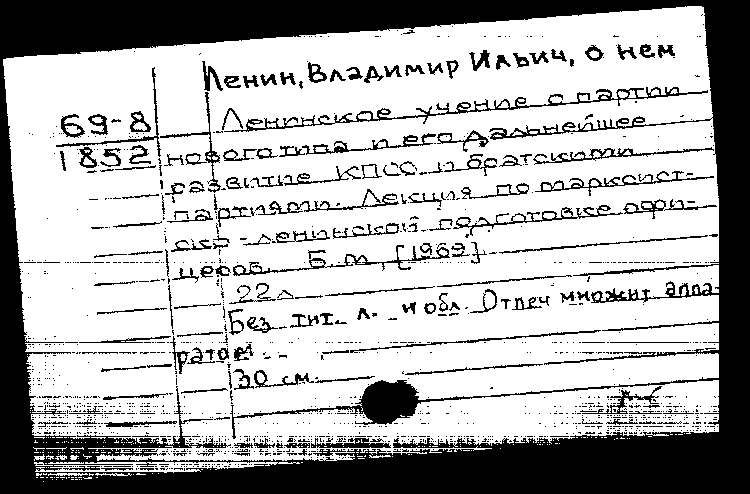 Ленин, Владимир Ильич, о нем
69-8
1852
Ленинское учение о партии
нового типа и его дальнейшее
развитие КПСС и братскими
партиями. Лекция по марксист-
ско-ленинской подготовке офи-
церов. Б. м, [1969]
22 л
Без тит. л. и обл. Отпеч множит аппа-
ратом
30 см.